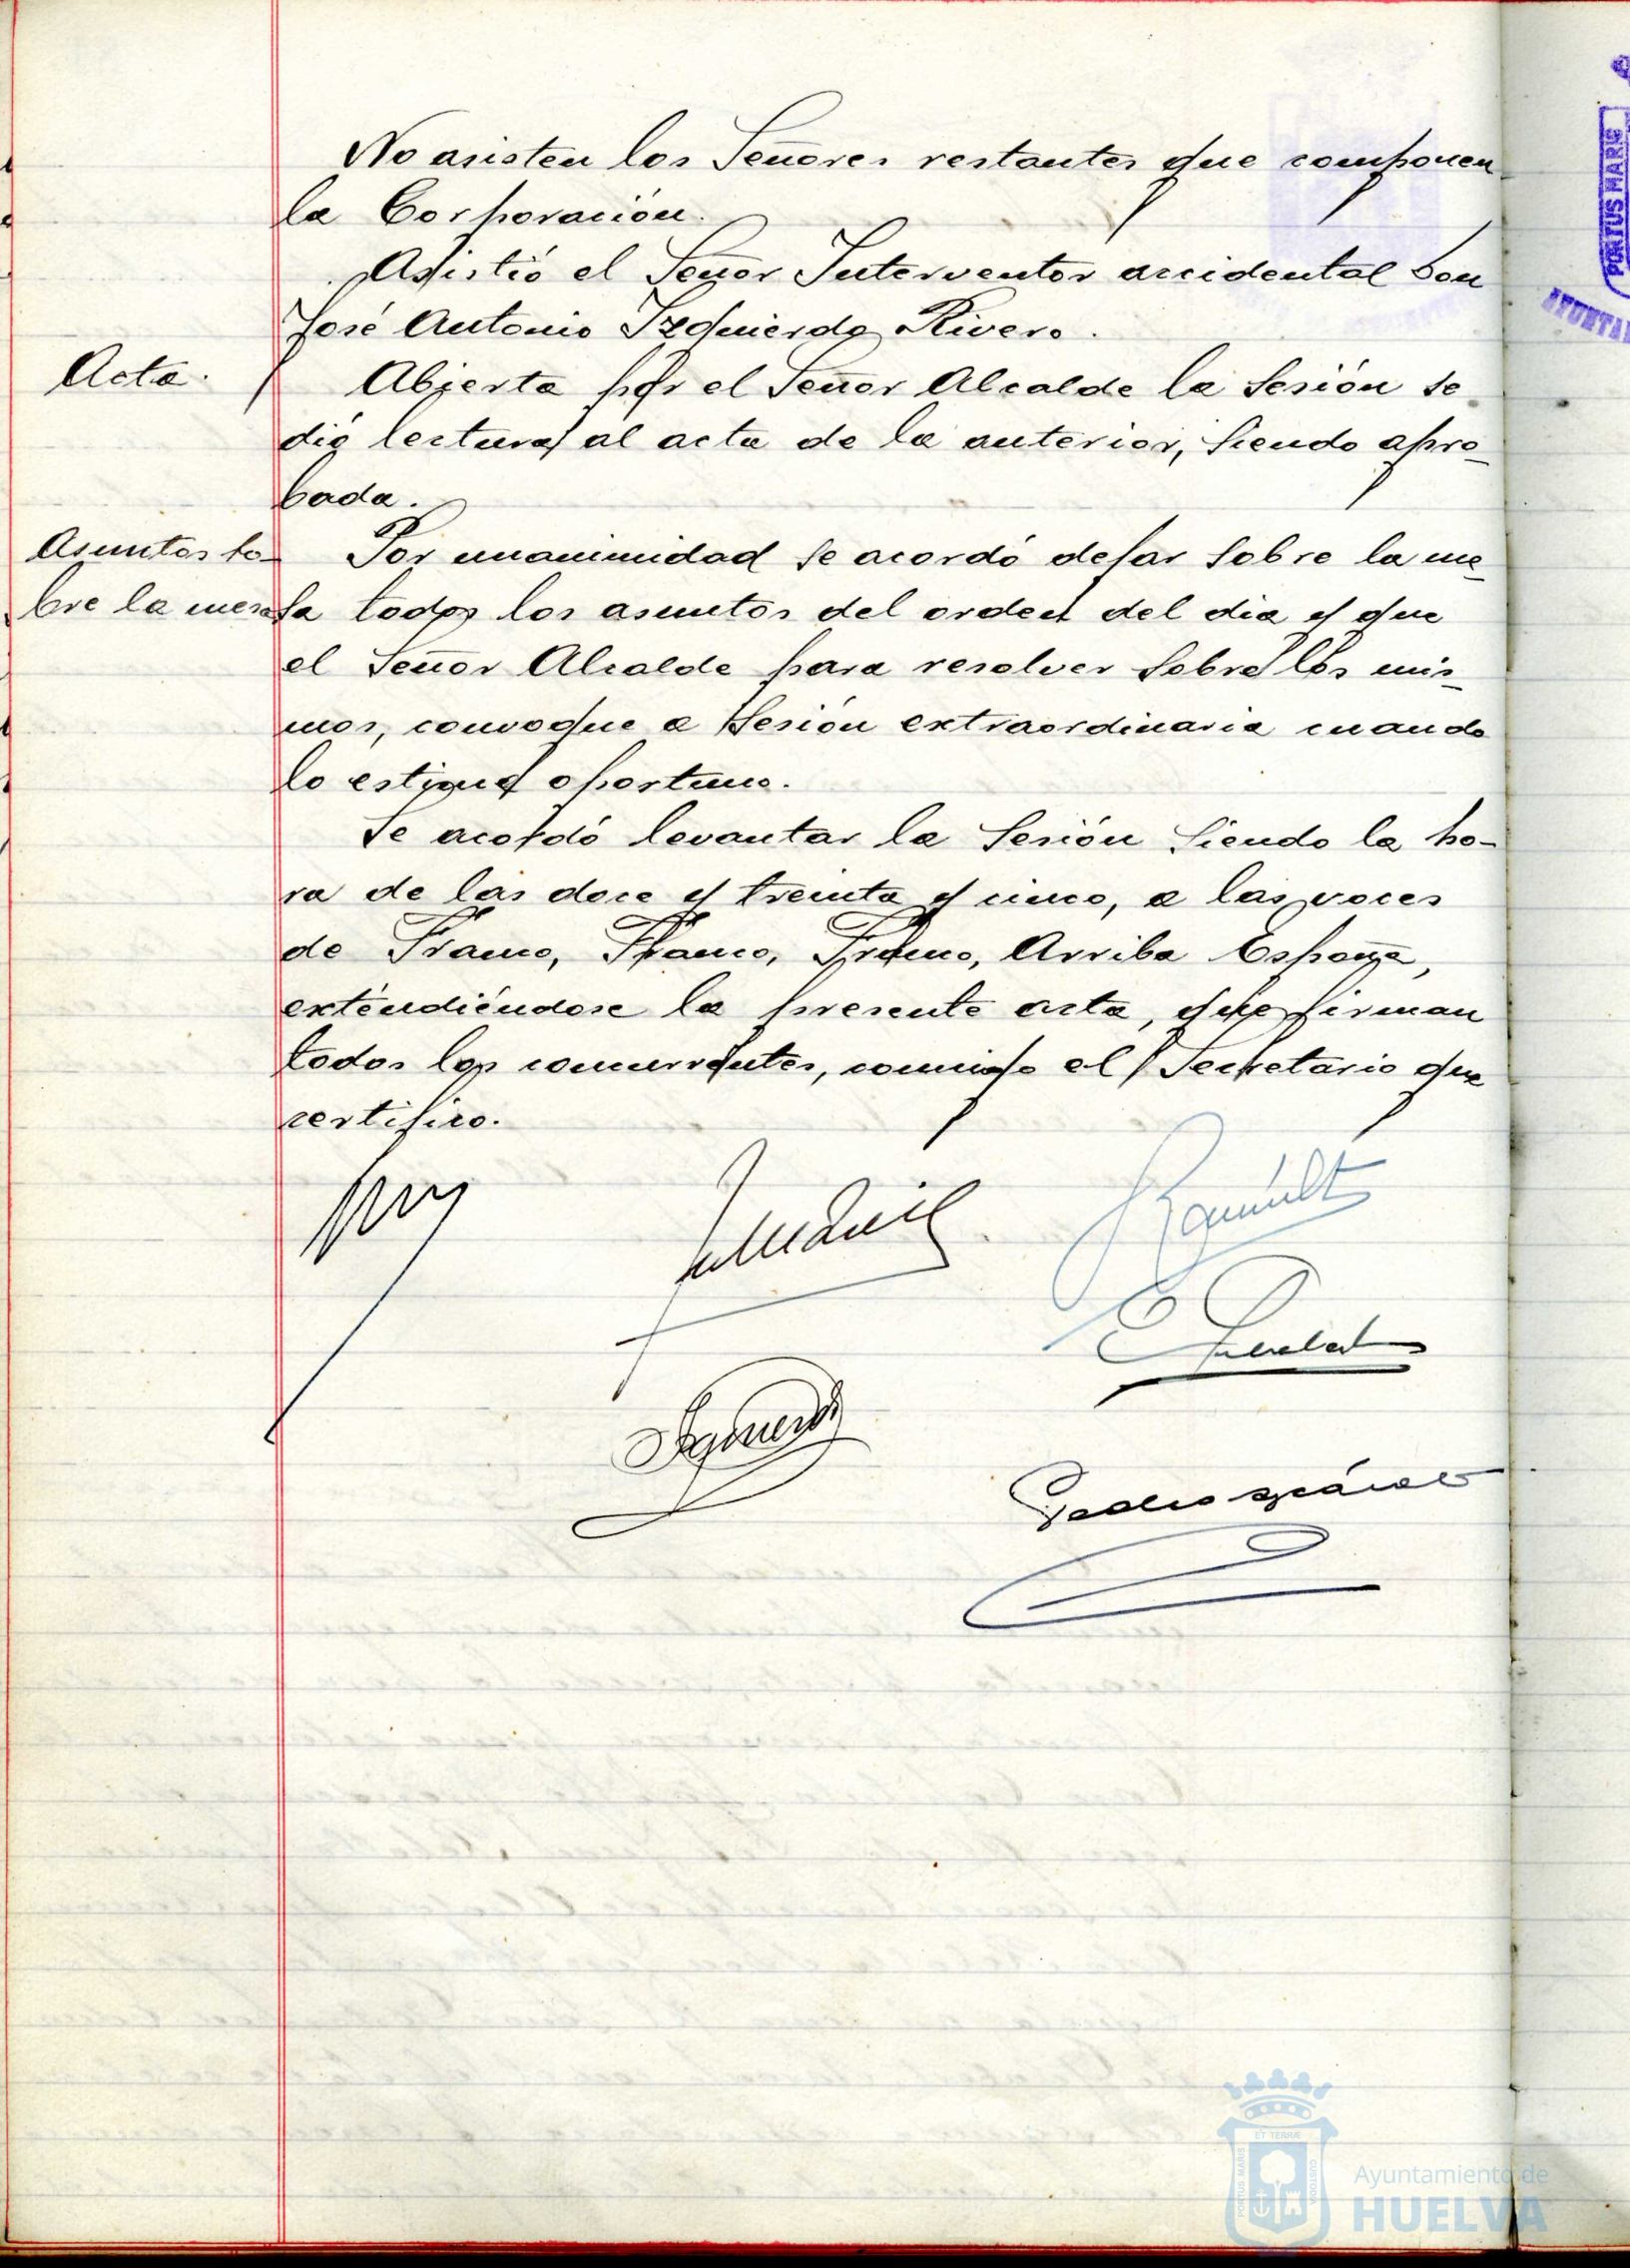 No asisten los Señores restantes que componen
la Corporación.
Asistió el Señor Interventor accidental Don
José Antonio Izquierdo Rivero.
Acta.
Abierta por el Señor Alcalde la Sesión se
dió lectura al acta de la anterior, siendo apro-
bada.
Asuntos so-
bre la mesa
Por unanimidad se acordó dejar sobre la me-
sa todos los asuntos del orden del dia y que
el Señor Alcalde para resolver sobre los mis-
mos, convoque a sesión extraordinaria cuando
lo estique oportuno.
Se acordó levantar la Sesión siendo la ho-
ra de las doce y treinta y cinco, a las voces
de Franco, Franco, Franco, Arriba España,
extendiéndose la presente acta, que firman
todos los concurrentes, conmigo el Secretario que
certifico.
Izquierdo
PORTUS MARIS
Ayuntamiento de
HUELVA